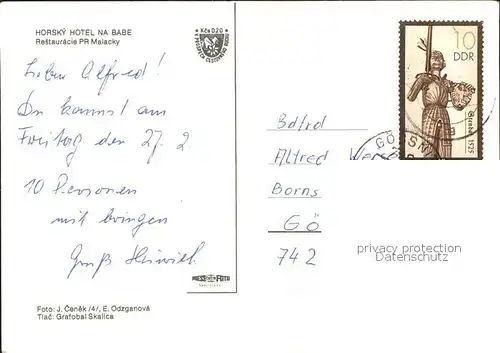 HORSKÝ HOTEL NA BABE
Reštaurácie PR Malacky
Kčs 0,20
Lieber Alfred!
Du kannst am
Freitag den 27. 2
10 Personen
mit bringen
Gruß Heinrich
PRESSFOTO
Foto: J. Čeněk /4/, E. Odzganová
Tlač: Grafobal Skalica
10
DDR
1525
Bdfrd
Alfred
Borns
GÖ
742
privacy protection
Datenschutz